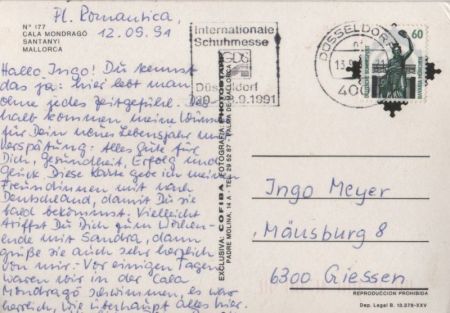 Nº 177
CALA MONDRAGÓ
SANTANYI
MALLORCA
Pl. Romantica,
12.09.91
Hallo Ingo! Du kennst
das ja: hier lebt man
ohne jedes Zeitgefühl. Des-
halb kommen meine Wünsche
für Dein neues Lebensjahr mit
Verspätung: Alles Gute für
Dich, Gesundheit, Erfolg und
Glück. Diese Karte gebe ich meinen
Freundinnen mit nach
Deutschland, damit Du sie
bald bekommst. Vielleicht
triffst Du Dich zum Wochen-
ende mit Sandra, dann
grüße sie auch sehr herzlich
von mir. Vor einigen Tagen
waren wir in der Cala
Mondragó schwimmen, es war
herrlich, wie überhaupt alles hier.
EXCLUSIVA: COFIBA FOTOGRAFIA: PHOTOSTAMP
PADRE MOLINA, 14 A - TEL. 29 52 87 - PALMA DE MALLORCA
Internationale
Schuhmesse
GDS
Düsseldorf
9.1991
DÜSSELDORF
13.9.
400
60
DEUTSCHE BUNDESPOST
Ingo Meyer
Mäusburg 8
6300 Giessen
REPRODUCCION PROHIBIDA
Dep. Legal B. 13.078-XXV